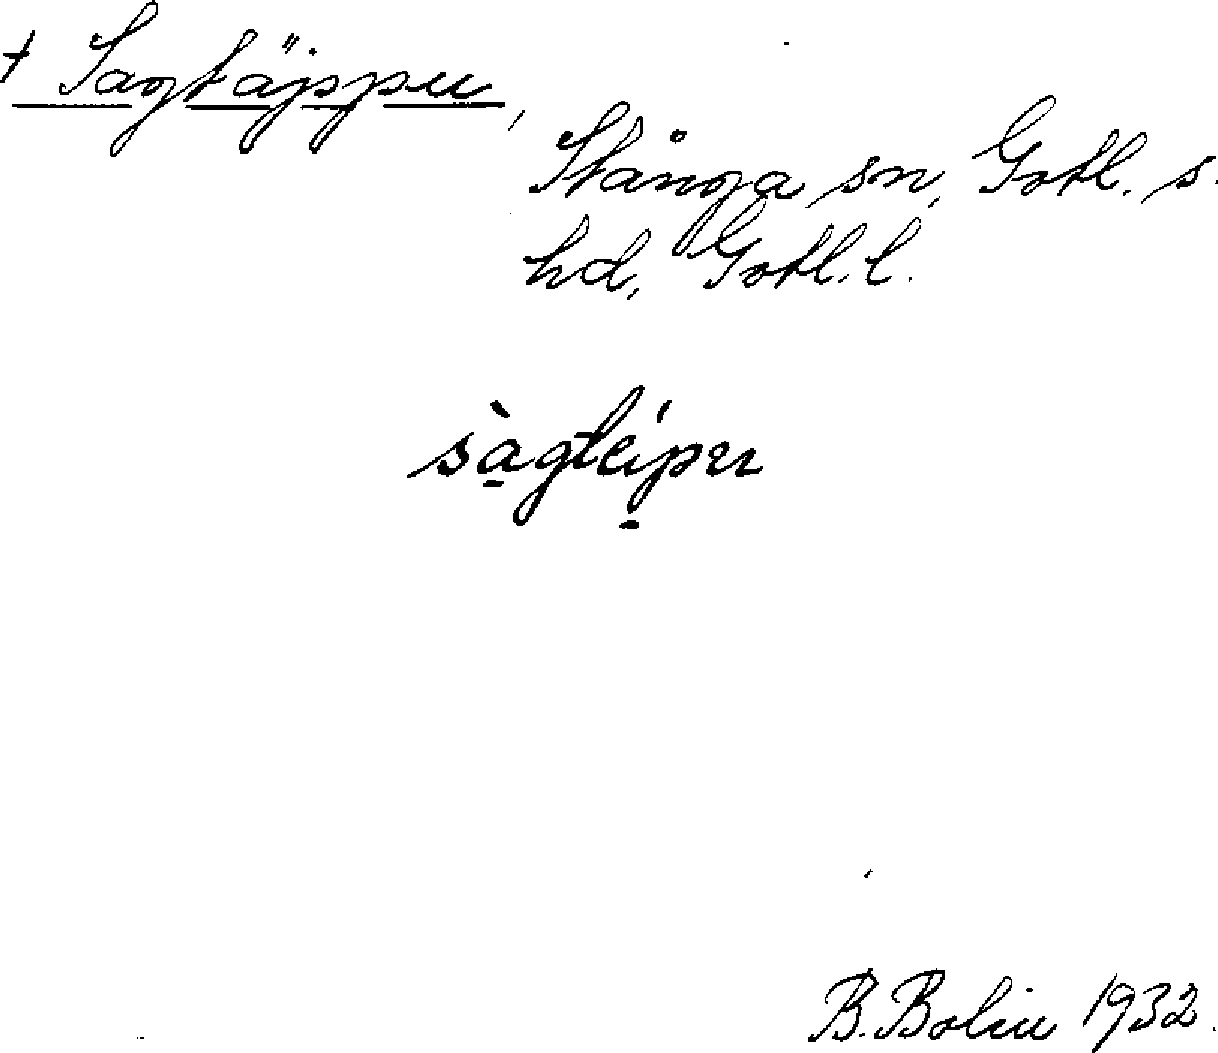 † Sagtäppu,
Stånga sn, Gotl. s.
hd, Gotl. l.
sàgtéipu
B. Bolin 1932.